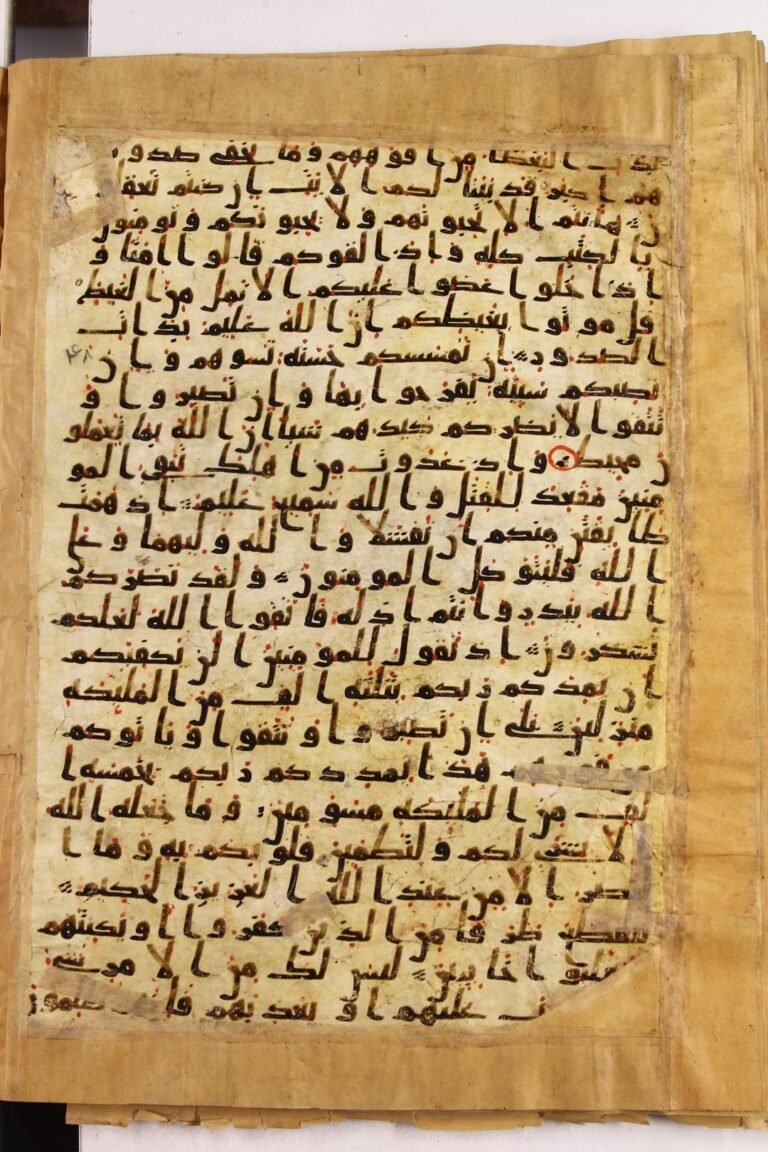 قد بدت البغضا من افوههم وما تخفي صدور
هم اكبر قد بينا لكم الايت ان كنتم تعقلو
ن هانتم الا تحبونهم ولا يحبونكم وتومنون
بالكتب كله واذا لقوكم قالوا امنا و
اذا خلوا عضوا عليكم الانمل من الغيظ
قل موتوا بغيظكم ان الله عليم بذات
الصدور ان تمسسكم حسنه تسوهم وان
تصبكم سييه يفرحوا بها وان تصبروا و
تتقوا لا يضركم كيدهم شيا ان الله بما يعملو
ن محيط واذ غدوت من اهلك تبوي المو
منين مقعد للقتل والله سميع عليم اذ همت
طايفتن منكم ان تفشلا والله وليهما وعلي
الله فليتوكل المومنون ولقد نصركم
الله ببدر وانتم اذله فاتقوا الله لعلكم
تشكرون اذ تقول للمومنين الن يكفيكم
ان يمدكم ربكم بثلثه الف من المليكه
منزلين بلي ان تصبروا وتتقوا وياتوكم
هذا يمددكم ربكم بخمسه ا
لف من المليكه مسومين وما جعله الله
الا بشري لكم ولتطمين قلوبكم به وما ا
لنصر الا من عند الله العزيز الحكيم
ليقطع طرفا من الذين كفروا او يكبتهم
فينقلبوا خايبين ليس لك من الامر شي
عليهم او يعذبهم فانهم ظلمون